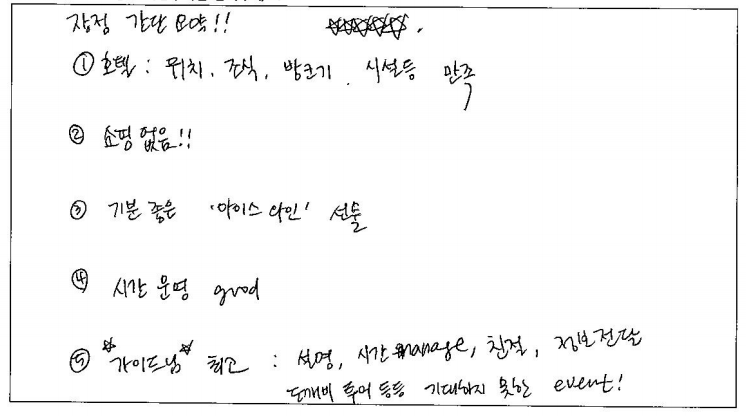 장점 간단 요약!! ☆☆☆☆☆.
① 호텔 : 위치, 조식, 방크기, 시설등 만족
② 쇼핑 없음!!
③ 기분 좋은 '아이스 와인' 선물
④ 시간 운영 good
⑤ ☆가이드님☆ 최고 : 설명, 시간 manage, 친절, 정보전달
도깨비 투어 등등 기대하지 못한 event!